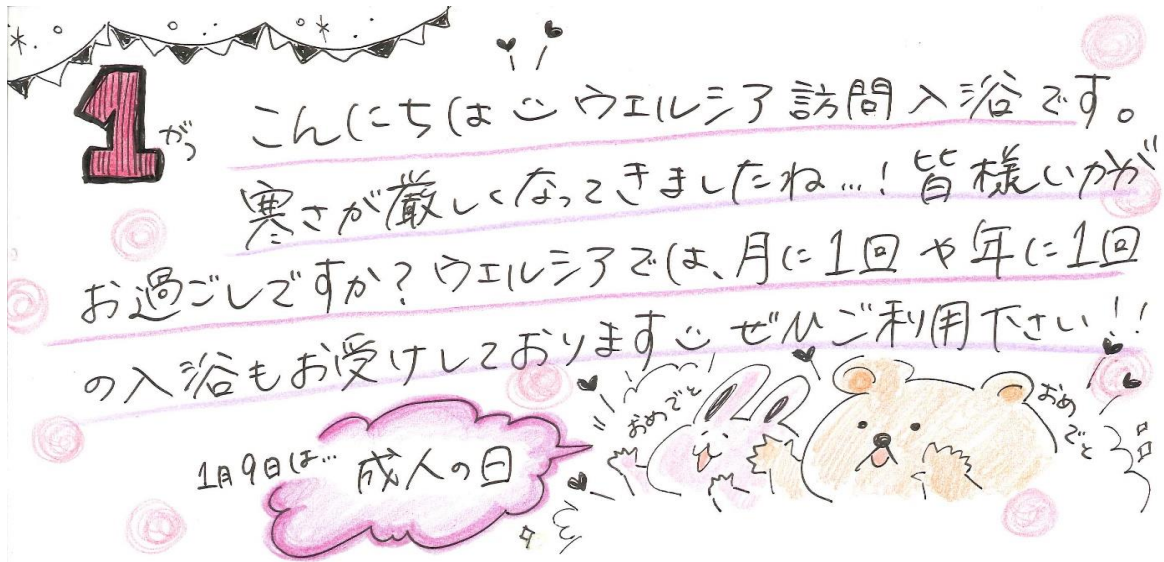 1がつ
こんにちは ウェルシア訪問入浴です。
寒さが厳しくなってきましたね…！皆様いかが
お過ごしですか？ウェルシアでは、月に1回や年に1回
の入浴もお受けしております ぜひご利用下さい！！
おめでと
おめでと
1月9日は…
成人の日